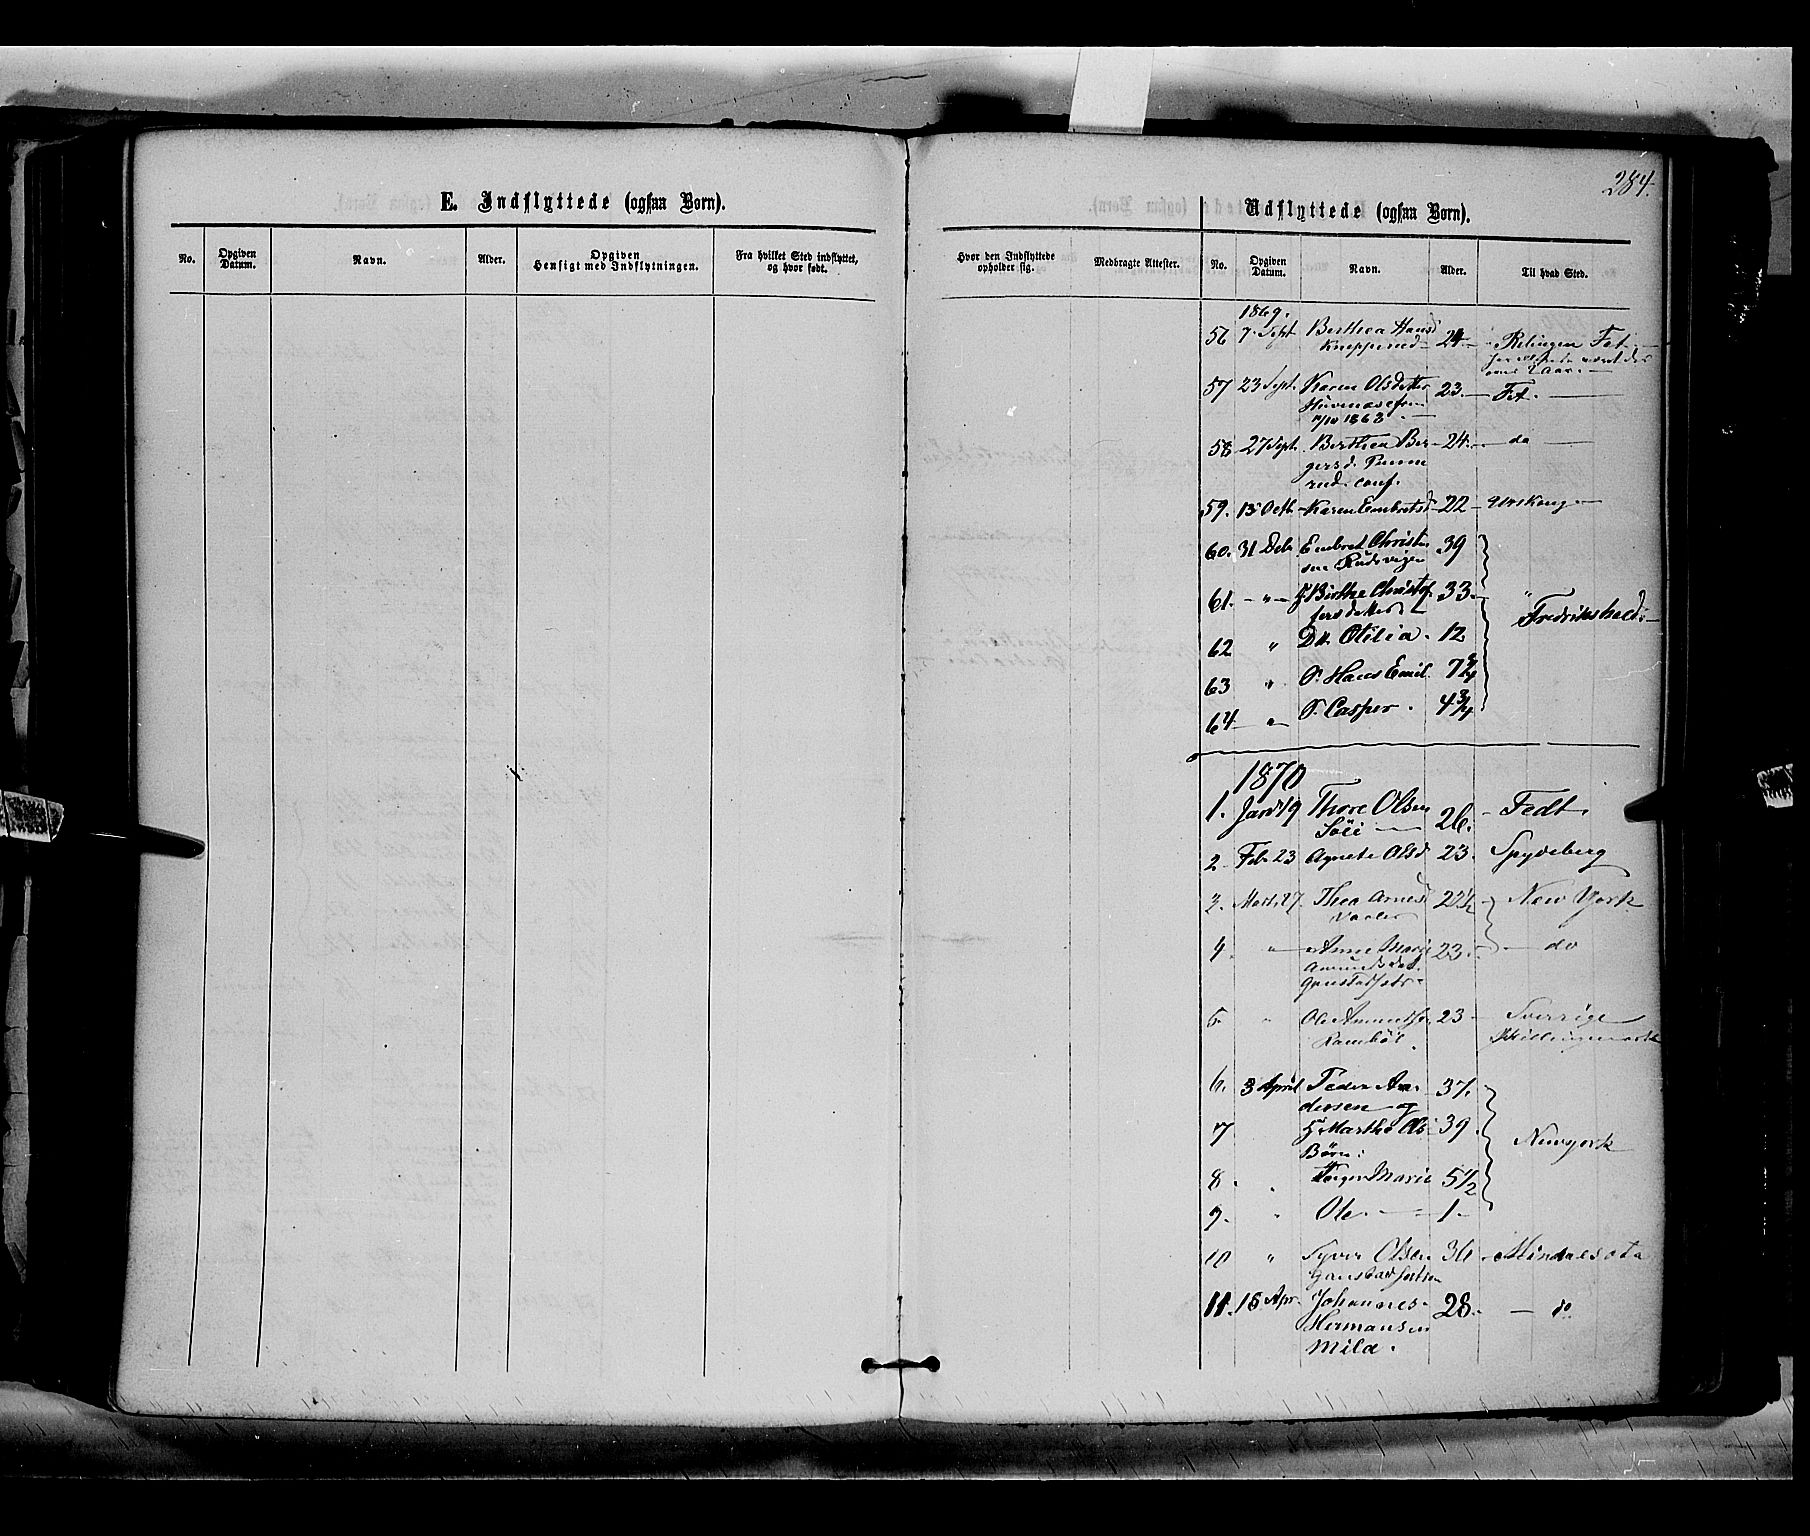 284.
E. Indflyttede (ogsaa Børn).
No. Opgiven Datum. Navn. Alder. Opgiven Hensigt med Indflytningen. Fra hvilket Sted indflyttet, og hvor født.
Hvor den Indflyttede opholder sig. Medbragte Attester.
Udflyttede (ogsaa Børn).
No. Opgiven Datum. Navn. Alder. Til hvad Sted.
1869.
56 7 Sept Berthea Hansd 24 Relingen Fet
57 23 Sept. Karen Olsdatter 23. Fet.
1868.
58 27 Sept. Berthea Ber 24. do
gersd.
rud. conf.
59. 13 Octb Karen Embretsd 22 Urskoug
60. 31 Deb Embret Christ 39
sen Rudsvigen
61. " H Birthe Christof 33.
fersdatter
Fredrikshald
62 " Dtr. Otilia. 12
63 " S. Hans Emil. 7 3/4
64 " S. Casper. 4 3/4
1870
1. Jan 19 Thore Olsen 26. Fedt.
2 Feb 23 Agnete Olsd 23. Spydeberg
3. Mart. 27. Thea Arnesd 22 1/2 New York
4 " Anne Marie 23. do
Amundsdat.
5. " Ole Amundsf. 23 Sverrige
6. 3 April Peder An 37.
dersen og
7 H Marthe Ols 39
Newyork
Børn:
8. " Marie 5 1/2
9. " Ole. 1
10 " Syver Olsen 36 Minnesota
11. 15 Apr. Johannes 28. do
Hermansen
Mila.